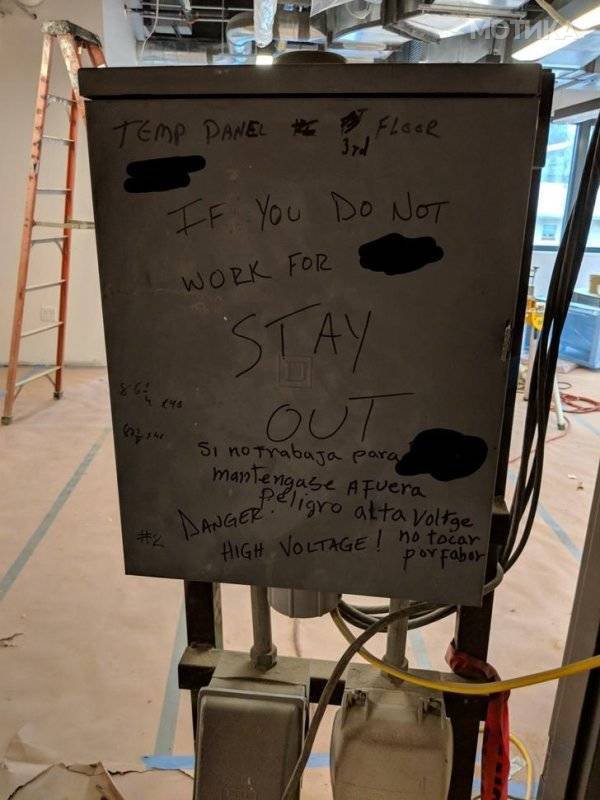 МОТИКА
TEMP PANEL FLOOR
3rd
IF YOU DO NOT
WORK FOR
STAY
OUT
Si no trabaja para
mantengase afuera
Peligro alta Voltge
no tocar
por fabor
DANGER!
HIGH VOLTAGE!
#2